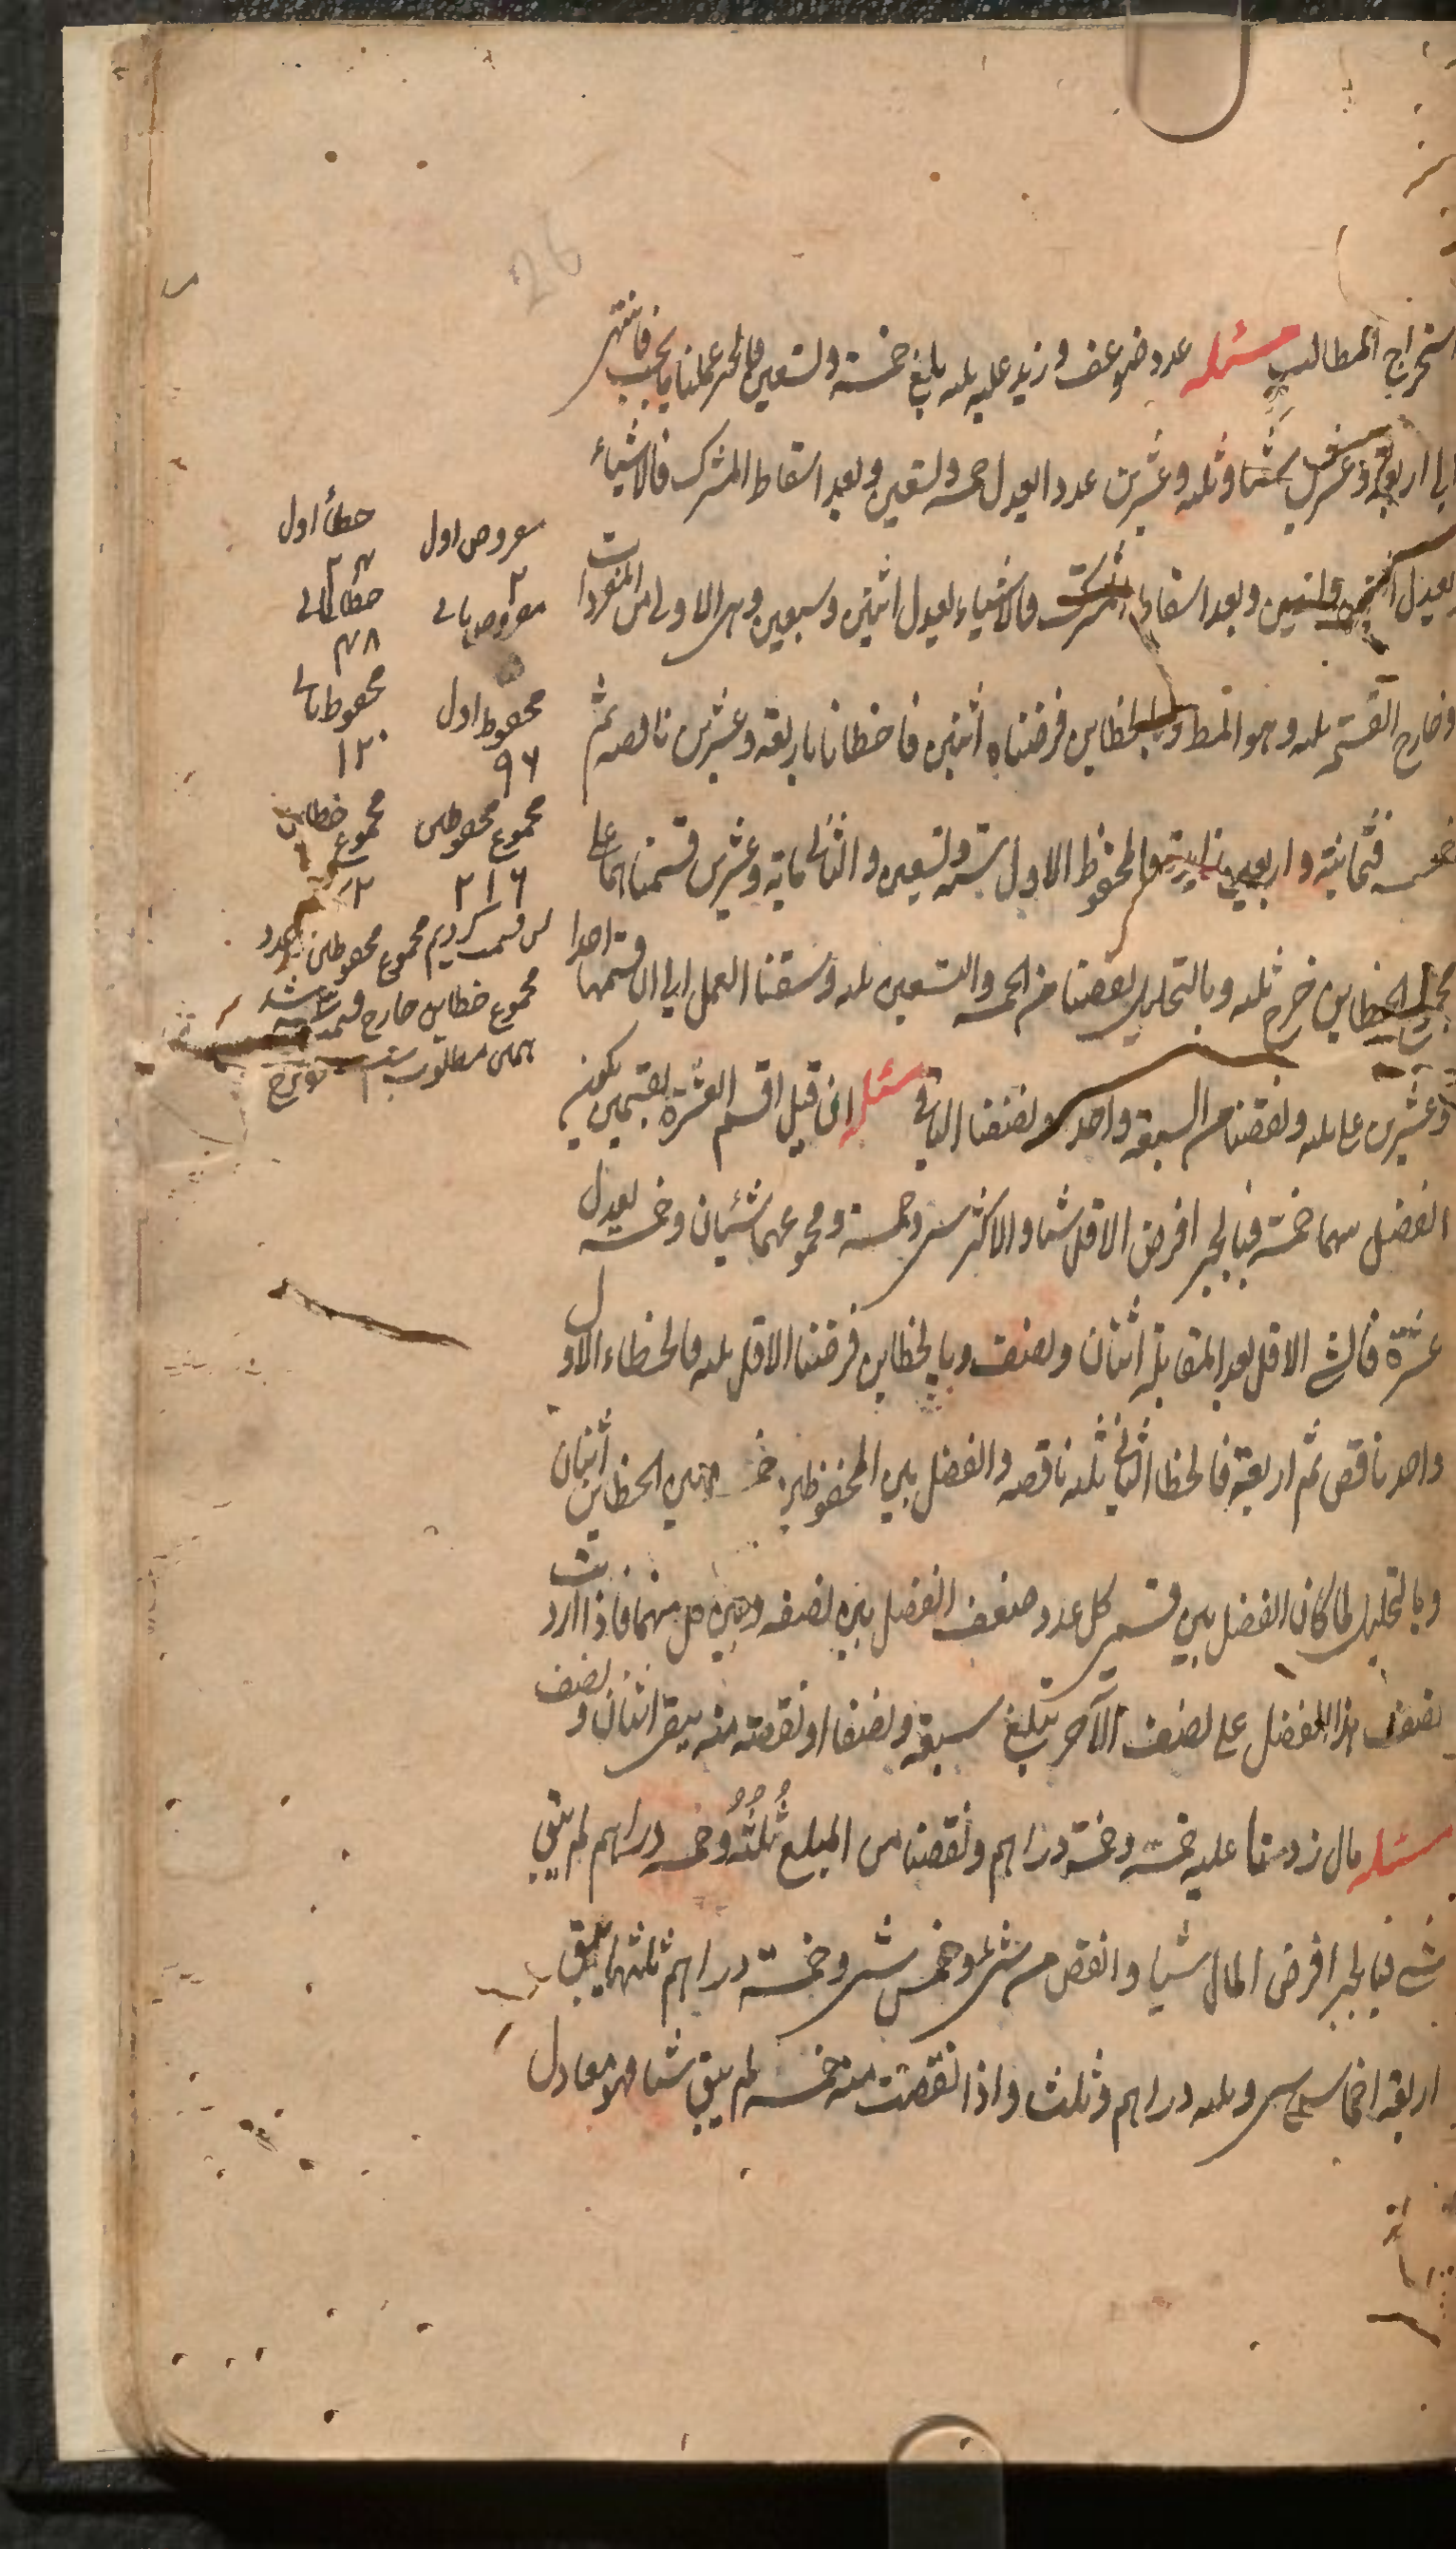 استخراج المطالب مسئله عدد ضوعف و زيد عليه ثلثه بلغ خمسة و تسعين فبالجبر عملنا ما يجب فانتهى
الى اربعة و عشرين شيئا و ثلثه و عشرين عددا يعدل خمسه و تسعين و بعد اسقاط المشترك فالاشياء
يعدل و بعد اسقاط المشترك فالاشياء يعدل اثنين و سبعين و هى الاولى من المفردات
و خارج القسمة ثلثه و هو المط و بالخطاين فرضناه اثنين فاخطانا باربعة و عشرين ناقصه ثم
خمسه فثمانية و اربعين زايدة فالمحفوظ الاول ستة و تسعين و الثانى مايه و عشرين قسمناهما على
مجموع الخطاين خرج ثلثه و بالتحليل نقصنا من الخمسه و التسعين ثلثه و سقنا العمل الى ان قسمنا احدا
و عشرين على ثلثه و نقصنا من السبعة واحد و نصفنا الباقى مسئله ان قيل اقسم العشرة بقسمين يكون
الفضل بينهما خمسة فبالجبر افرض الاقل شيئا و الاكثر شى و خمسة و مجموعهما شيئان و خمسه يعدل
عشرة فالشى الاقل بعد المقابلة اثنان و نصف و بالخطاين فرضنا الاقل ثلثه فالخطاء الاول
واحد ناقص ثم اربعة فالخطا الثانى ثلثه ناقصه و الفضل بين المحفوظين خمسه و بين الخطاين اثنان
و بالتحليل لما كان الفضل بين قسمى كل عدد ضعف الفضل بين نصفه و بين كل منهما فاذا زدت
نصف هذا الفضل على نصف الآخر تبلغ سبعة و نصفا او نقصته منه يبقى اثنان و نصف
مسئله مال زدنا عليه خمسه و خمسة دراهم و نقصنا من المبلغ ثُلُثُهُ و خمسه دراهم لم يبق
شى فبالجبر افرض المال شيا و انقص من شى و خمس شى و خمسة دراهم ثلثهما يبقى
اربعة اخماس شى و ثلثه دراهم و ثلث و اذا نقصت منه خمسه لم يبق شيئا فهو معادل
مفروض اول خطأ اول
٢ ٢٤
مفروض ثانى خطأ ثانى
٤٨
محفوظ اول محفوظ ثانى
٩٦ ١٢٠
مجموع محفوظين مجموع خطاين
٢١٦ ٧٢
پس قسمت كرديم مجموع محفوظين بعدد
مجموع خطاين خارج قسمت ٣ شد
همين مطلوب است
26